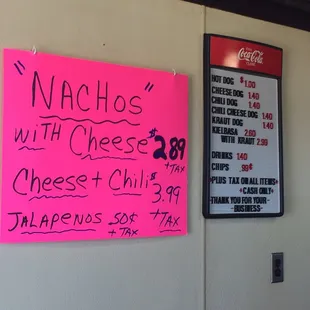 "NACHOS"
WITH Cheese $2.89
+TAX
Cheese + Chili $3.99
+TAX
JALAPENOS 50¢
+ TAX
Coca-Cola
HOT DOG $1.00
CHEESE DOG 1.40
CHILI DOG 1.40
CHILI CHEESE DOG 1.40
KRAUT DOG 1.40
KIELBASA 2.60
WITH KRAUT 2.99
DRINKS 1.40
CHIPS .99¢
*PLUS TAX ON ALL ITEMS*
*CASH ONLY*
THANK YOU FOR YOUR
BUSINESS